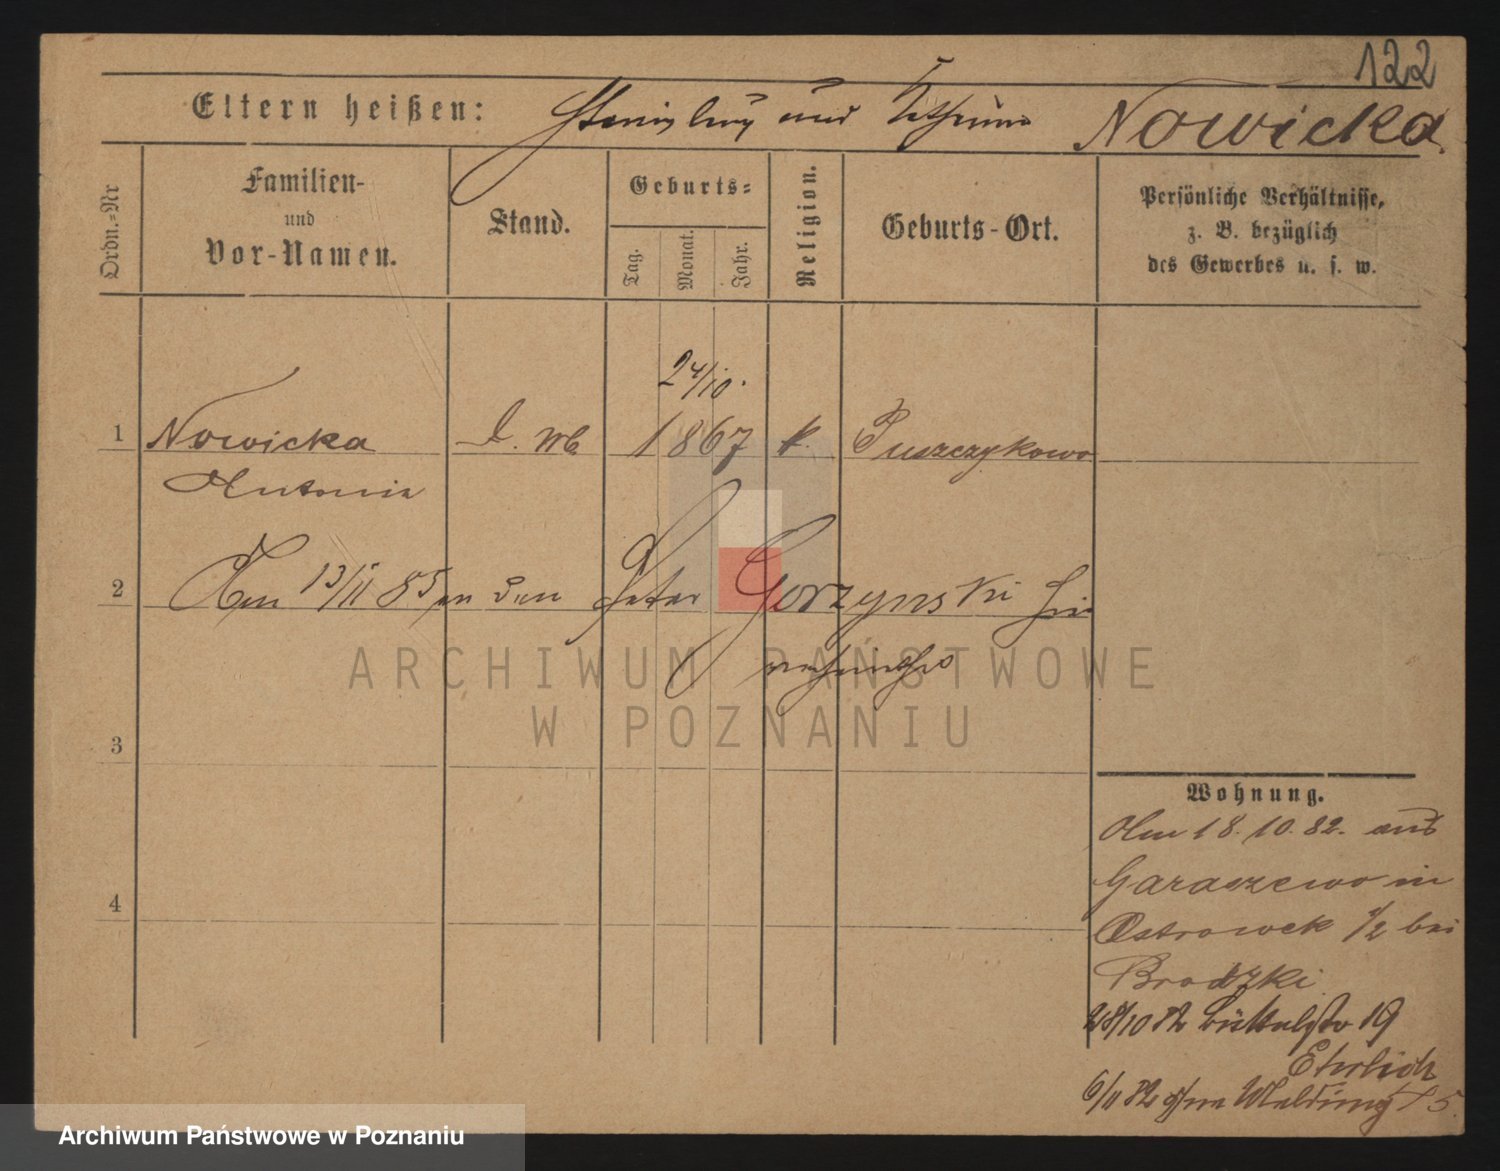 122
Eltern heißen: und Nowicka
Ordn.=Nr
Familien-
und
Vor-Namen.
Stand.
Geburts=
Tag.
Monat.
Jahr.
Religion.
Geburts-Ort.
Persönliche Verhältnisse,
z. B. bezüglich
des Gewerbes u. s. w.
24/10.
1 Nowicka 1867 k. Puszczykowo
Antonia
2 Am 13/11 85 an den Peter Gorzynski
3
4
Wohnung.
Am 18. 10. 82. aus
Garaszewo in
Ostrowek 1/2 bei
Brodzki
28/10 82 19
Ehrlich
6/11 82
ARCHIWUM PAŃSTWOWE
W POZNANIU
Archiwum Państwowe w Poznaniu